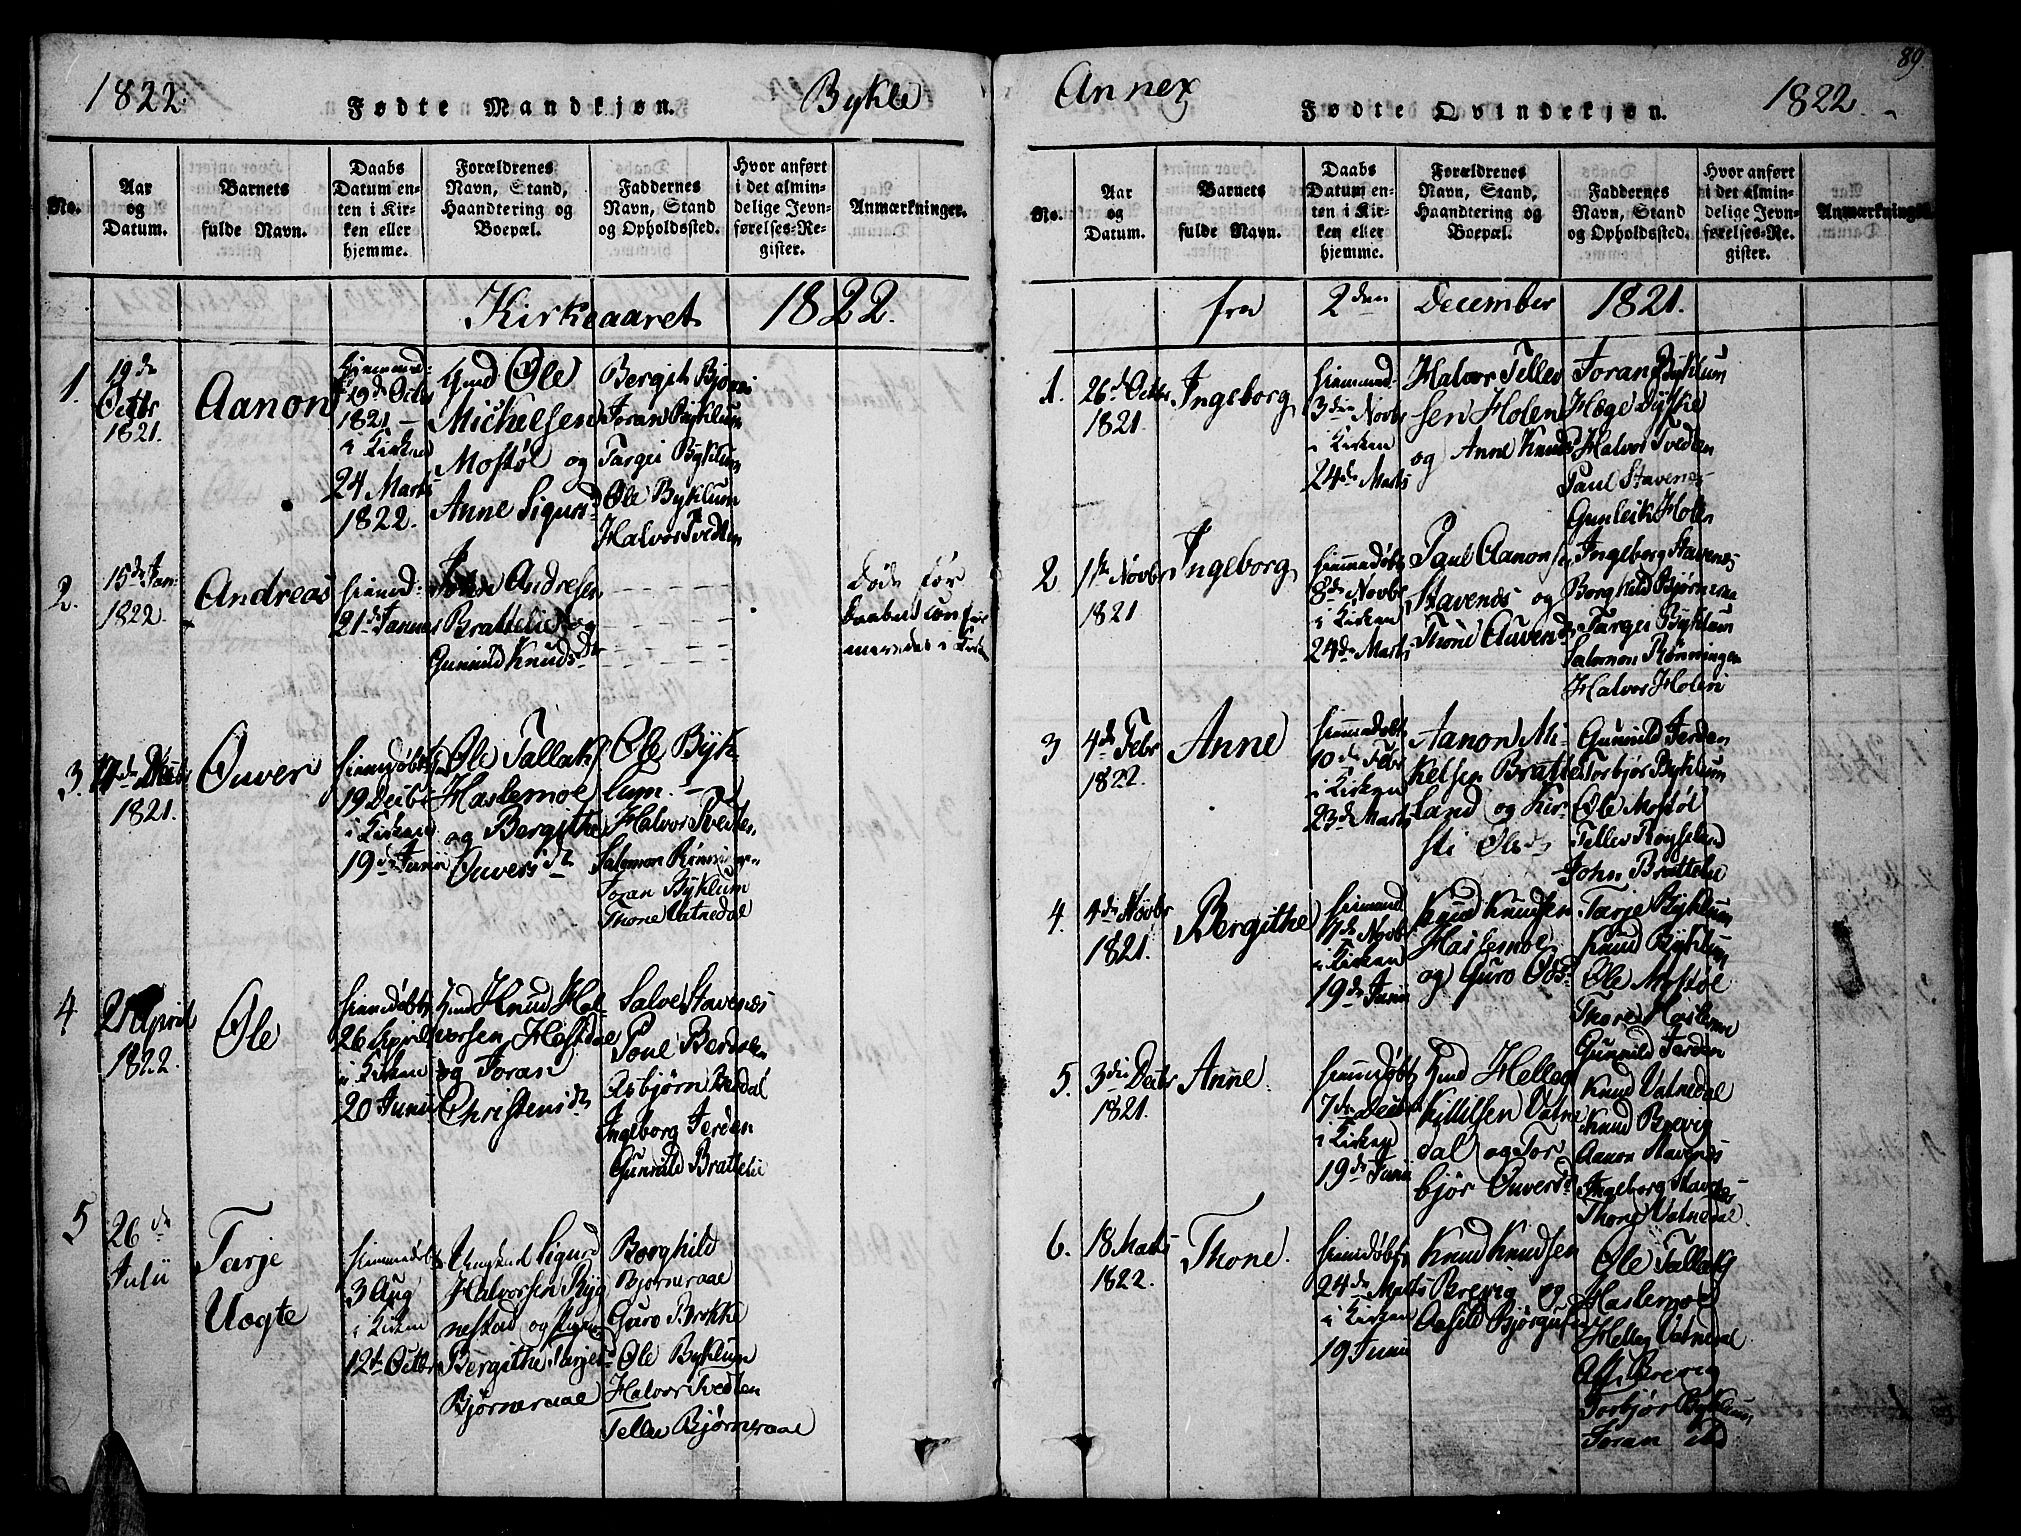 1822.
Fødte Mandkjøn.
Bykle
No.
Aar
og
Datum.
Barnets
fulde Navn.
Daabs
Datum en-
ten i Kir-
ken eller
hjemme.
Forældrenes
Navn, Stand,
Haandtering og
Boepæl.
Faddernes
Navn, Stand
og Opholdssted.
Hvor anført
i det almin-
delige Jevn-
førelses-Re-
gister.
Anmærkninger.
Kirkeaaret 1822.
1.
19de
Octbr
1821.
Aanon
19de Octbr
1821 –
i Kirken
24 Marts
1822.
Gmd Ole
Mickelsen
Mostøl og
Anne Sigurdsd
Joran Byklum
Targei Byklum
Ole Byklum
Halvor Tvedten
2.
15de Jan:
1822.
Andreas
21de Januar
John Andresen
Brattelie og
Gunnild Knudsdr
døde før
3.
1821.
Ouver
hiemmedøbt
19 Decbr
i Kirken
19de Junii
Ole Tallaks
Haslemoe
og Bergithe
Ouversdr
Ole Byk-
lum. –
Halvor Tvedten
Salomon
Joran Byklum
Thone Vatnedal
4
21 April
1822.
Ole
hiemmedøbt
26 April
i Kirken
20 Junii
Gmd Knud Hal-
vorsen
og Joran
Christensdr
Salve Stavenes
Asbjørn Berdal
Ingeborg Jerden
Gunnild Brattelie
5
26de
Julii
Tarje
Uogte
3 Aug
i Kirken
12te Octbr
Ungkarl Sigurd
Halvorsen Ryg
nestad og
Bergithe Tarjesd
Bjørneraae
Borghild
Bjørneraae
Guro Brokke
Ole Byklum
Halvor Tvedten
Tellev Bjørneraae
Annex
Fødte Qvindekjøn.
1822.
89
No.
Aar
og
Datum.
Barnets
fulde Navn.
Daabs
Datum en-
ten i Kir-
ken eller
hjemme.
Forældrenes
Navn, Stand,
Haandtering og
Boepæl.
Faddernes
Navn, Stand
og Opholdssted.
Hvor anført
i det almin-
delige Jevn-
førelses-Re-
gister.
Anmærkninger.
fra 2den December 1821.
1.
26de Octbr
1821
Ingeborg
3die Novbr
i Kirken
24de Marts
Halvor Tellev
sen Holen
og Anne Knuds
Joran Byklum
Hæge Dyskie
Halvor Tvedten
Paul Stavenes
Gunleik Holen
2
1te Novbr
1821
Ingeborg
hiemmedøbt
8de Novbr
i Kirken
24de Marts
Paul Aanonsen
Stavenes og
Thone Auvensd
Ingeborg Stavenes
Borghild Bjørneraa
Targei Byklum
Salomon Rønningen
Halvor Holen
3
4de Febr
1822.
Anne
hiemmedøbt
10de Febr
i Kirken
23de Marts
Aanon Mi-
kelsen Bratte
land og Kir-
sti Olsdr
Gunnild Jerden
Torbjør Byklum
Ole Mostøl
Tellev Røyseland
John Brattelie
4.
4de Novbr
1821.
Bergithe
i Kirken
19de Junii
Knud Knudsen
Haslemoe
og Guro Olsd
Tarje Byklum
Knud Byklum
Ole Mostøl
Thore Haslemoe
Gunnild Jerden
5.
3die Decbr
1821.
Anne.
hiemmedøbt
7de Decbr
i Kirken
19de Junii
Gmd Helleg
Kittilsen Vatne
dal og Tor
bjør Ouversd
Knud Vatnedal
Knud Brevig
Aanon Stavenes
Ingeborg Stavenes
Thone Vatnedal
6.
18 Marts
1822.
Thone.
hiemmedøbt
24de Marts
i Kirken
19 Junii
Knud Knudsen
Brevig og
Aasild Bjørgufsd
Ole Tallaks
Haslemoe
Helleg Vatnedal
Brevig
Torbjør Byklum
Joran